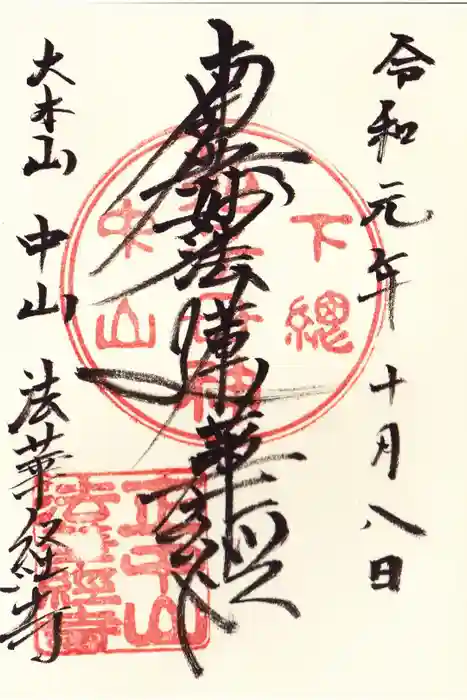 令和元年十月八日
南無妙法蓮華経
大本山 中山 法華経寺
下總
中山
正中山
法華経寺